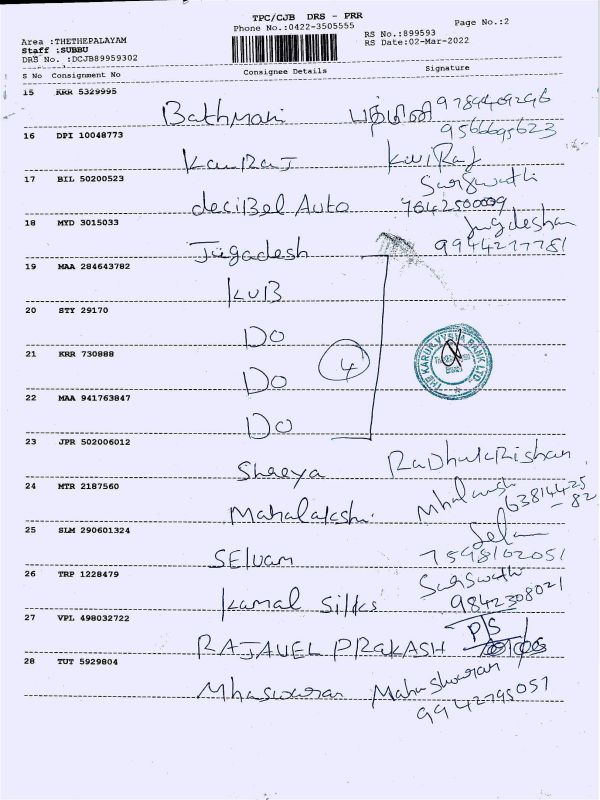 TPC/CJB DRS - PRR
Phone No.:0422-3505555
Page No.:2
RS No.:899593
RS Date:02-Mar-2022
Area :THETHEPALAYAM
Staff :SUBBU
DRS No. :DCJB89959302
S No Consignment No Consignee Details Signature
15 KRR 5329995
Bathmani
16 DPI 10048773
9566695623
KauRaj KaviRaj
17 BIL 50200523
Saraswathi
deciBel Auto 7642500009
18 MYD 3015033
Jugdeshan
Jugadesh 9944277781
19 MAA 284643782
KVB
20 STY 29170
Do
21 KRR 730888
Do 4
THE KARUR VYSYA BANK LTD.
22 MAA 941763847
Do
23 JPR 502006012
Shreya RaDhakRishan
24 MTR 2187560
Mahalakshi 63814425
-82
25 SLM 290601324
SElvam 7598102051
26 TRP 1228479
Saraswathi
Kamal Silks 9842308021
27 VPL 498032722
RAJAVEL PRAKASH P/S
28 TUT 5929804
Mhaswaran Maheshwaran
9942795057